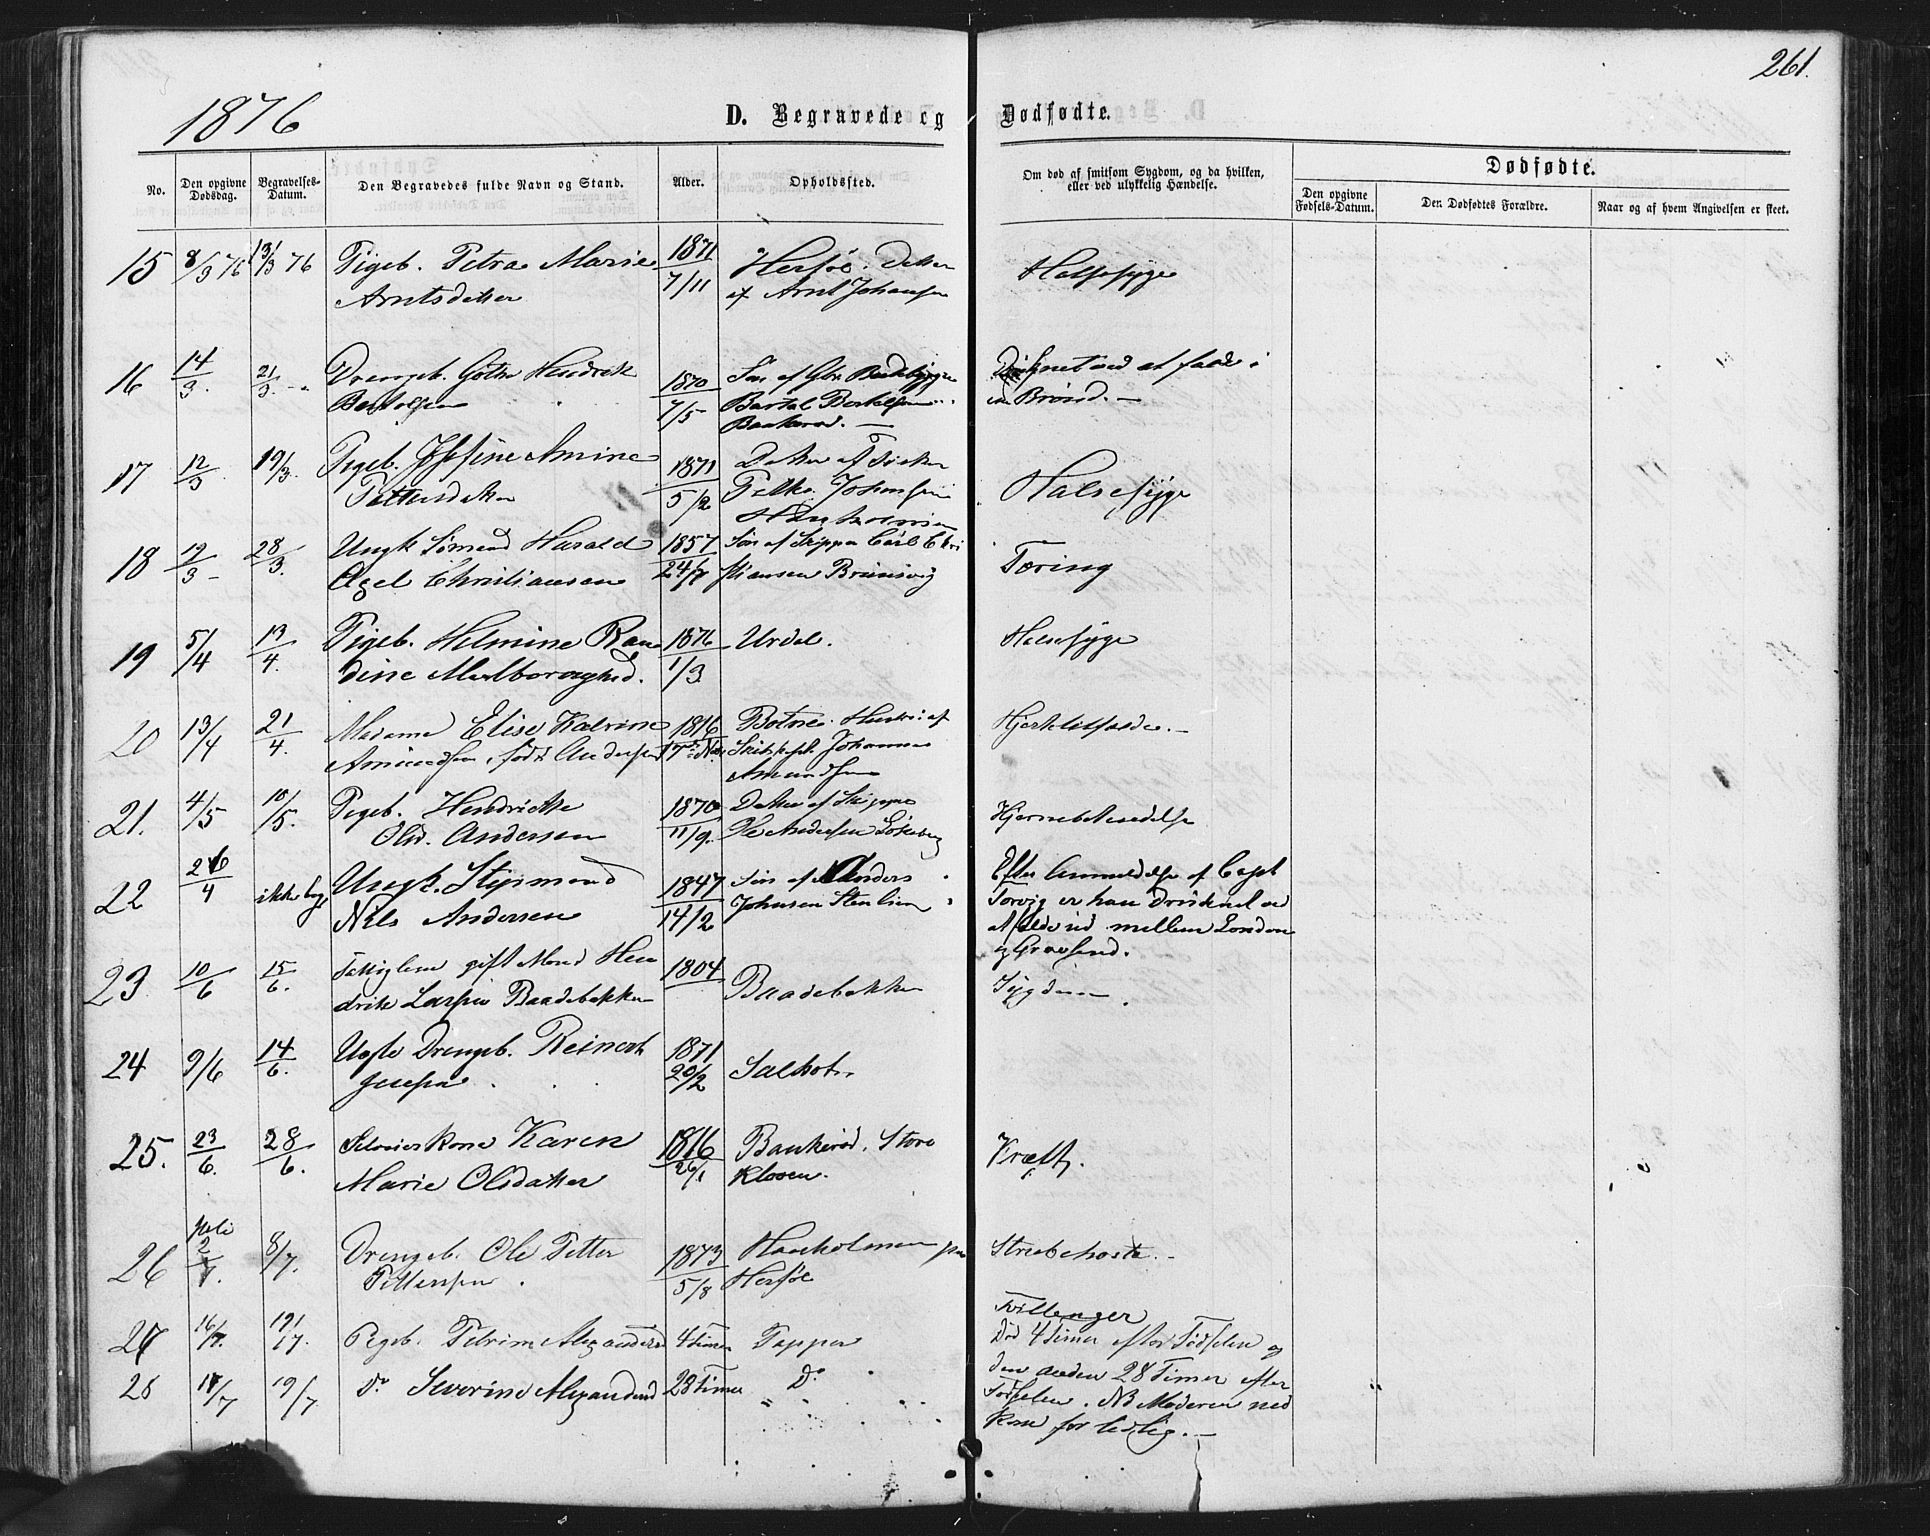 261.
1876
D. Begravede og Dødfødte.
No.
Den opgivne Dødsdag.
Begravelses-Datum.
Den Begravedes fulde Navn og Stand.
Alder.
Opholdssted.
Om død af smitsom Sygdom, og da hvilken, eller ved ulykkelig Hændelse.
Dødfødte.
Den opgivne Fødsels-Datum.
Den Dødfødtes Forældre.
Naar og af hvem Angivelsen er skeet.
15 8/3 76 13/3 76 Pigeb. Petra Marie 1871 Herføl. Datter Halsesyge
Arntsdatter 7/11 af Arnt Johansen
16 14/3. 21/3. Drengeb. Hendrik 1870 Søn af Druknet ved at falde i
7/5 Bertel en Brønd. —
Bankerød. —
17 12/3 19/3. Pigeb. Josefine Amine 1871 Datter af Halsesyge
Pettersdatter 5/2 Johansen
18 19/3 28/3. Ungk. Sømand Harald 1857 Søn af Skipper Carl Chri Tæring
Axel Christiansen 24/7 stiansen Brunsvig
19 5/4 13/4. Pigeb. Helmine Ran 1876 Urdal. Halsesyge
dine Marlboroughsd. 1/3
20 13/4 21/4. Madame Elise Katrine 1816 Botne. Hustru af Hjerteslag
Amundsen, født Andersen Johannes
Amundsen
21. 4/5 10/5. Pigeb. Hendrikke 1870 Datter af Skipper Hjernebetændelse
Olid. Andersen 11/9. Ole Andersen
22 26/4 ikke beg. Ungk. Styrmand 1847 Søn af Anders Efter Anmeldelse af Capt
Nils Andersen 14/2 Johnsen Stenlien Torvig er han druknet ved
at falde ud mellem London
og Gravesend.
23 10/6 15/6. gift Mand Hen 1804 Baadebakken Sygdom.
drik Larsen Baadebakken
24 9/6 14/6. Ugte Drengeb. Reinert 1871
Jensen 20/2
25. 23/6. 28/6. Selveierkone Karen 1816 Bankerød. Store Kræft.
Marie Olsdatter 26/1 Kloven.
26 Juli 2/7. 8/7. Drengeb. Ole Petter 1873 Hauholmen paa Strubehoste.
Pettersen 5/8 Herføl
27 16/7. 19/7. Pigeb. Petrine Alexandersd 4 Timer Tapper Tvillenger
Død 4 Timer efter Fødselen og
28 17/7 19/7 Do Severine Alexandersd 28 Timer Do den anden 28 Timer efter
Fødselen. NB Moderen ned
kom for tidlig. —